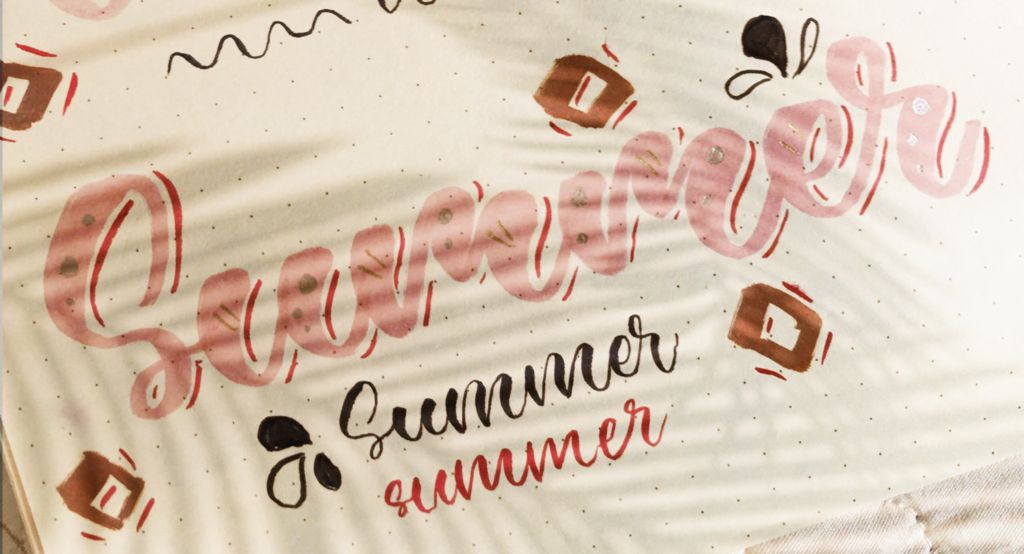 Summer
Summer
summer